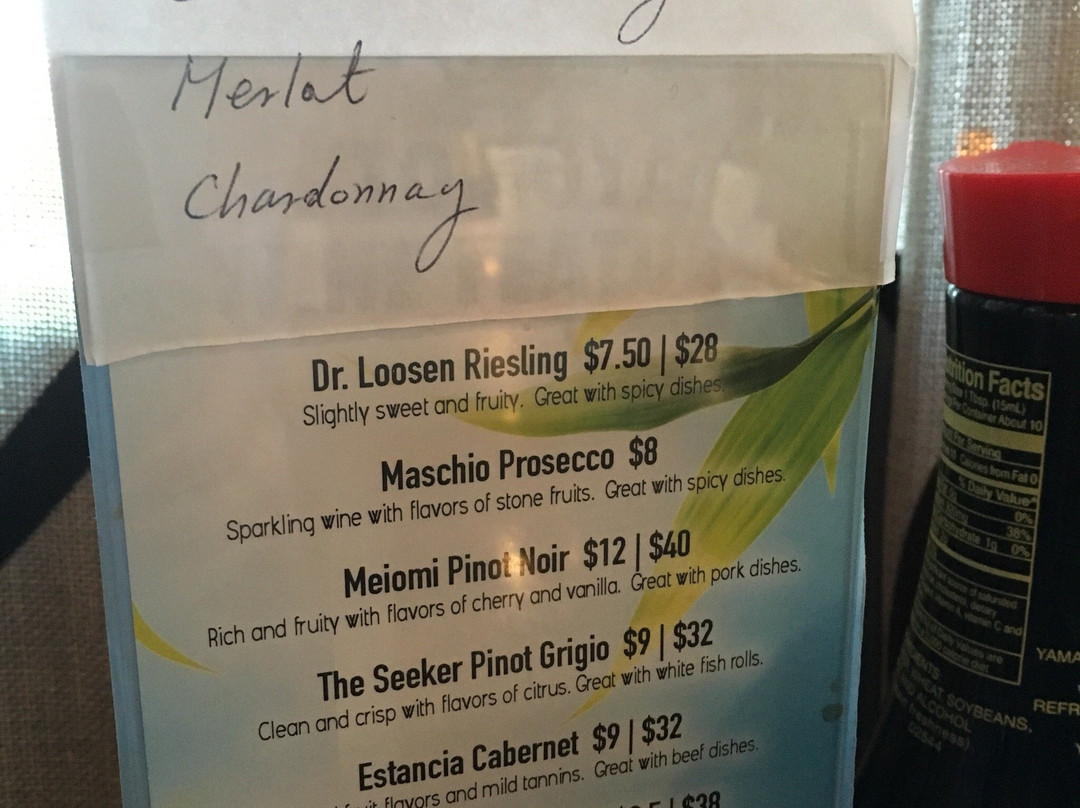 Merlot
Chardonnay
Dr. Loosen Riesling $7.50 | $28
Slightly sweet and fruity. Great with spicy dishes.
Maschio Prosecco $8
Sparkling wine with flavors of stone fruits. Great with spicy dishes.
Meiomi Pinot Noir $12 | $40
Rich and fruity with flavors of cherry and vanilla. Great with pork dishes.
The Seeker Pinot Grigio $9 | $32
Clean and crisp with flavors of citrus. Great with white fish rolls.
Estancia Cabernet $9 | $32
flavors and mild tannins. Great with beef dishes.
| $38
Nutrition Facts
1 Tbsp. (15mL)
Container About 10
Serving
Calories from Fat 0
% Daily Value*
0%
38%
1g 0%
vitamin C and
Values are
SOYBEANS,
ALCOHOL
freshness)
YAMA
REFR